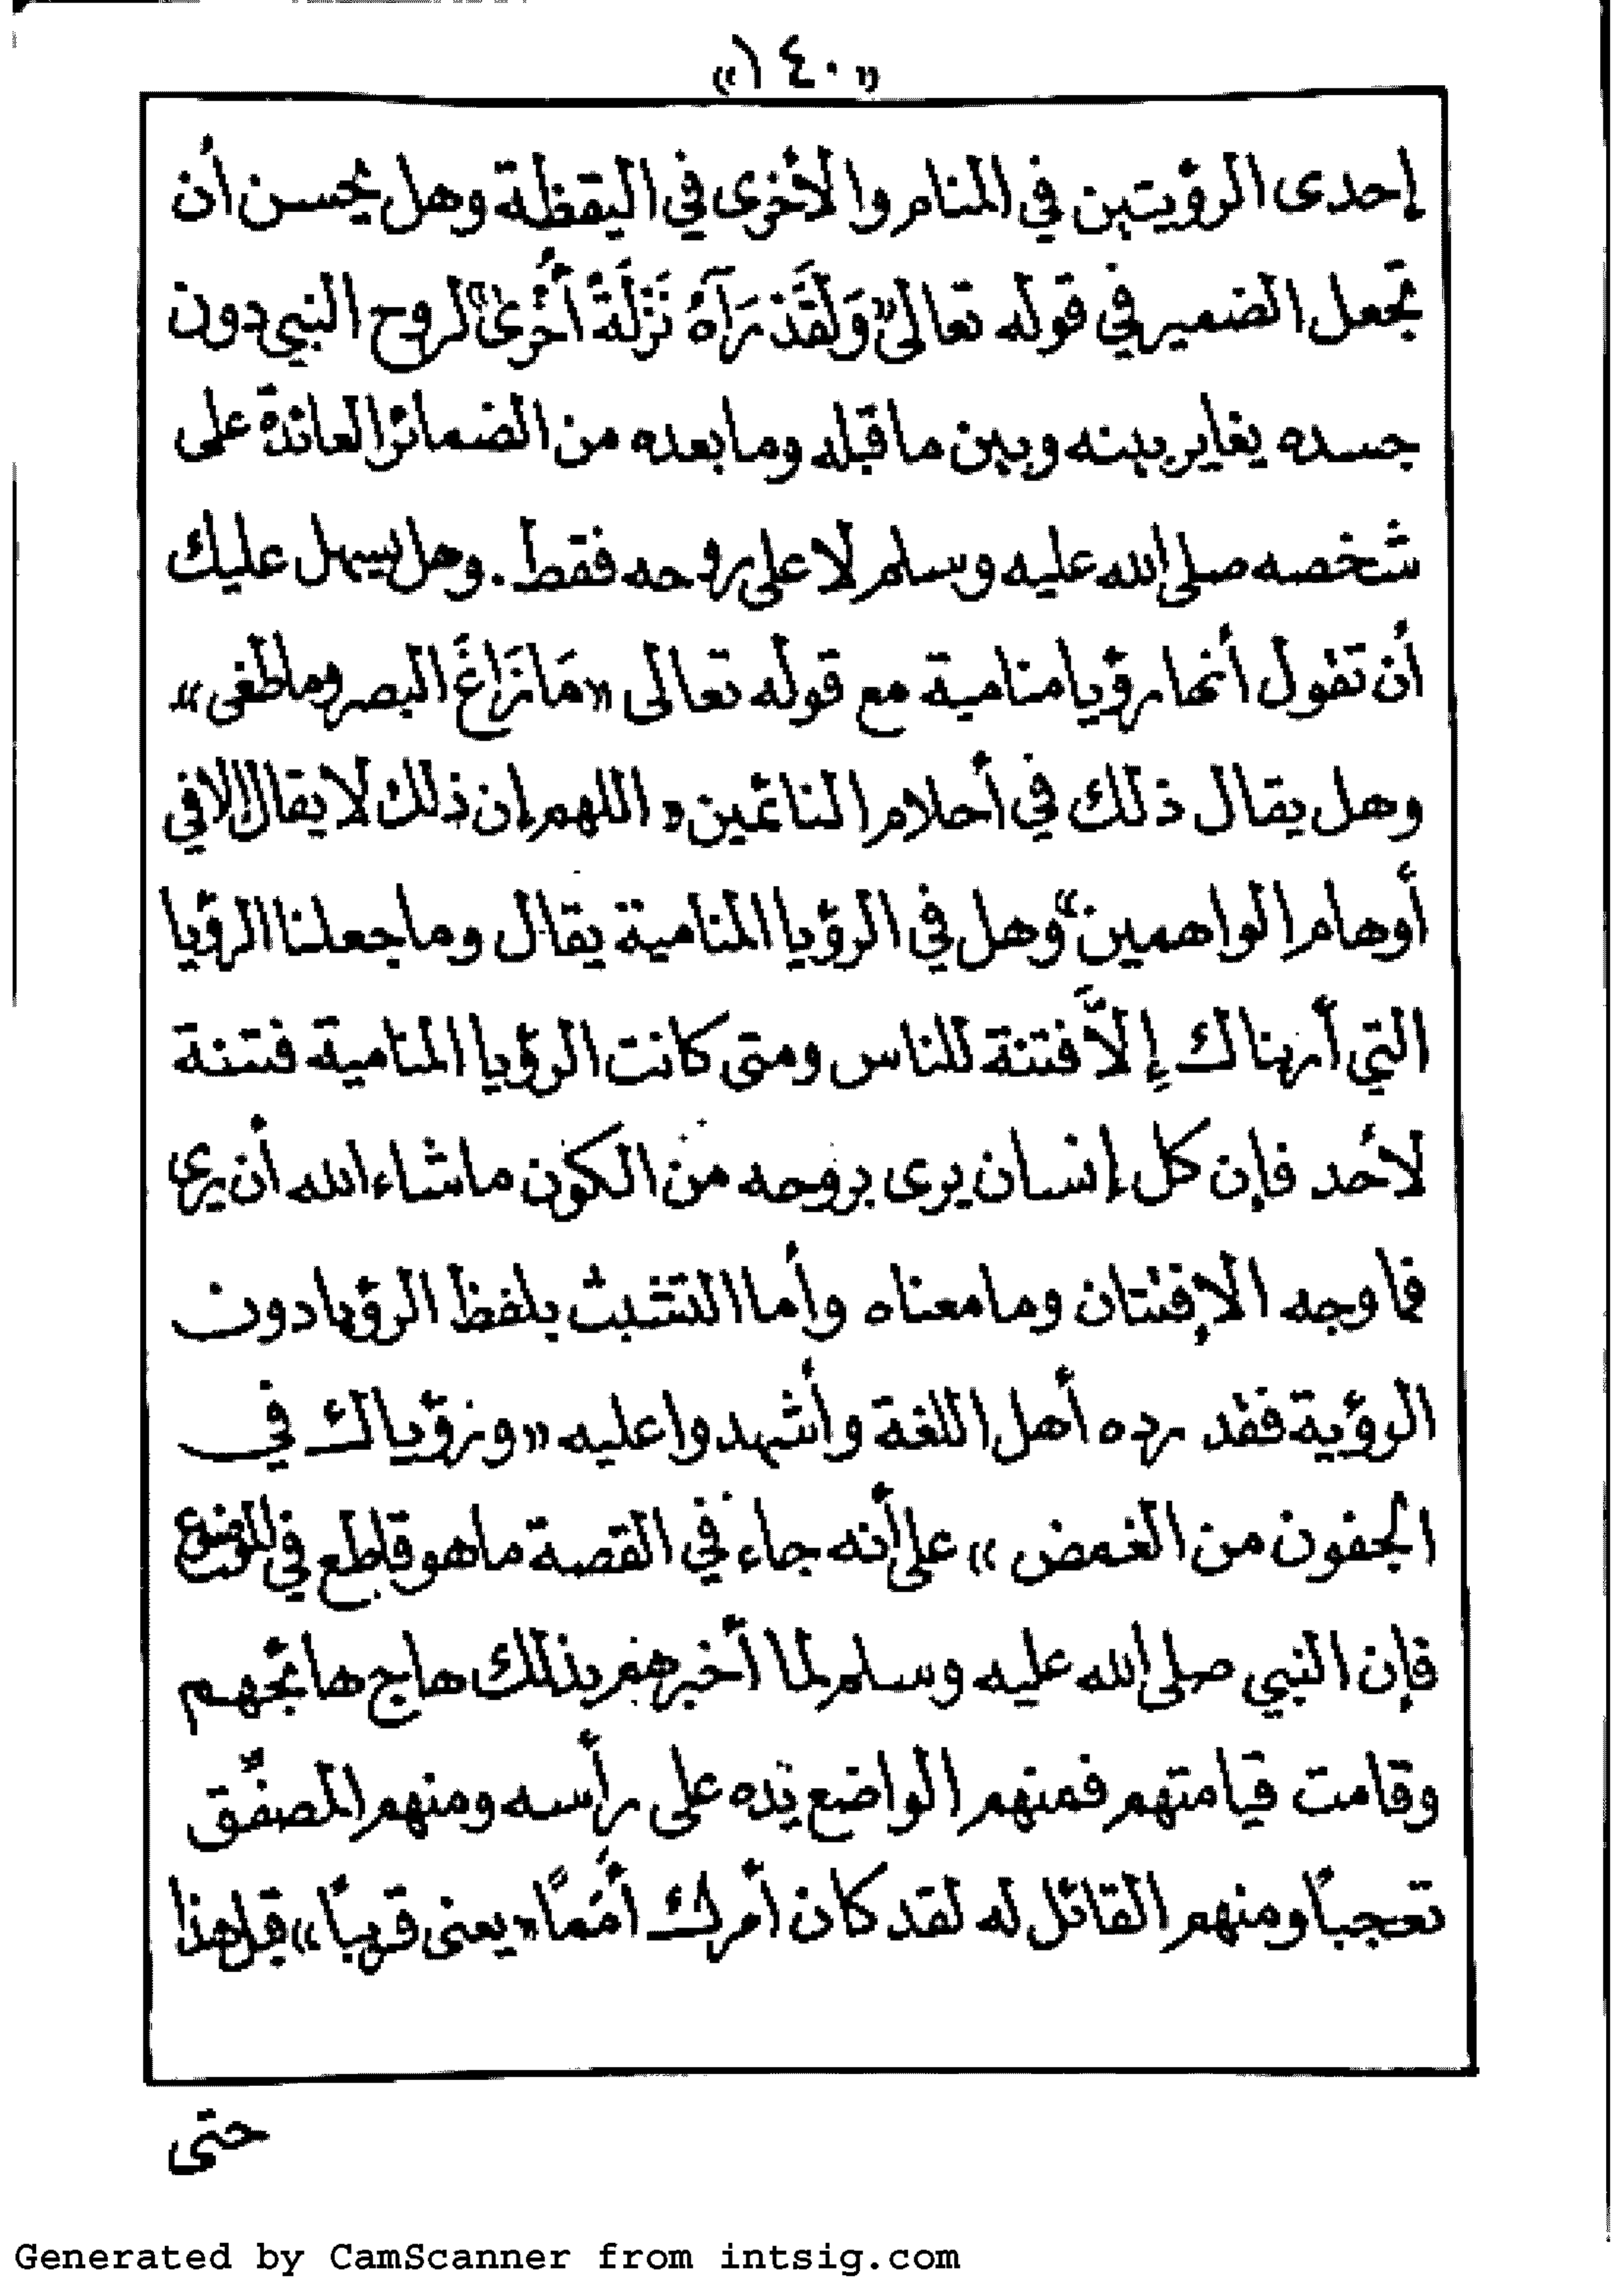 «١٤٠»
إحدى الرؤيتين في المنام والأخرى في اليقظة وهل يحسن أن
تجعل الضمير في قوله تعالى «وَلَقَدْ رَآهُ نَزْلَةً أُخْرَىٰ» لروح النبي دون
جسده يغاير بينه وبين ما قبله وما بعده من الضمائر العائدة على
شخصه صلى الله عليه وسلم لا على روحه فقط. وهل يسهل عليك
أن تقول أنها رؤيا منامية مع قوله تعالى «مَا زَاغَ البصر وما طغى»
وهل يقال ذلك في أحلام النائمين «اللهم إن ذلك لا يقال إلا في
أوهام الواهمين» وهل في الرؤيا المنامية يقال وما جعلنا الرؤيا
التي أريناك إِلَّا فتنة للناس ومتى كانت الرؤيا المنامية فتنة
لأحد فإن كل إنسان يرى بروحه من الكون ما شاء الله أن يرى
فما وجه الإفتتان وما معناه وأما التشبث بلفظ الرؤيا دون
الرؤية فقد رده أهل اللغة وأشهدوا عليه «ورؤياك في
الجفون من الغمض» على أنه جاء في القصة ما هو قاطع في الموضوع
فإن النبي صلى الله عليه وسلم لما أخبرهم بذلك هاج هائجهم
وقامت قيامتهم فمنهم الواضع يده على رأسه ومنهم المصفّق
تعجباً ومنهم القائل له لقد كان أمرك أَمَماً «يعنى قريباً» قبل هذا
حتى
Generated by CamScanner from intsig.com